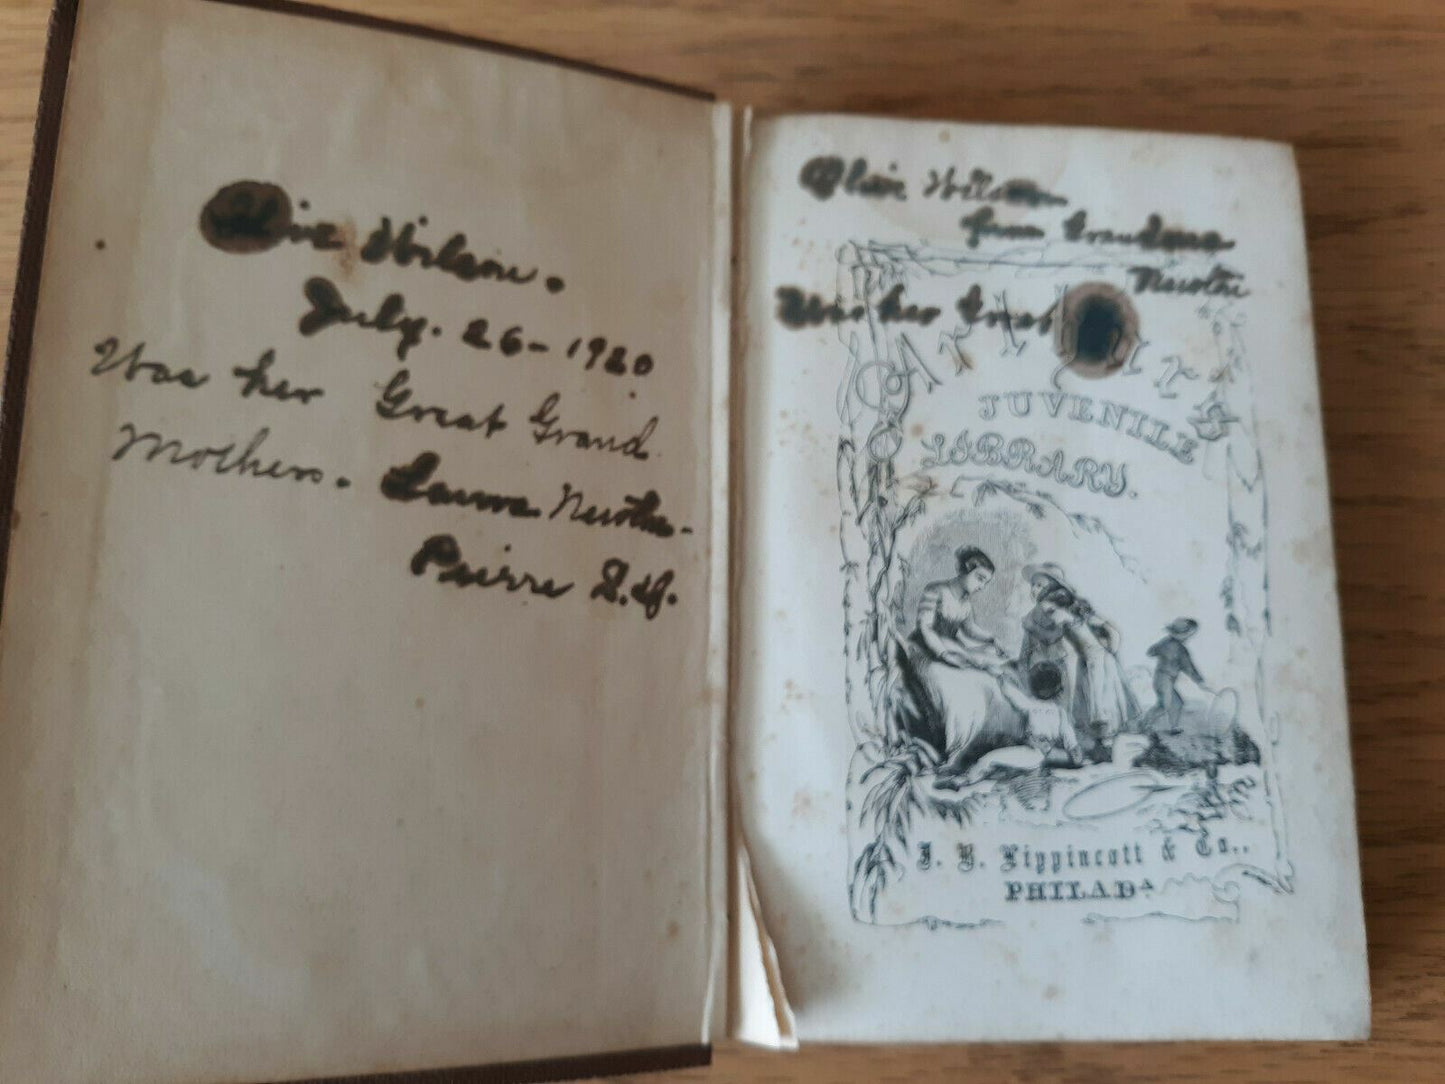 Olive Wilson.
July. 26 - 1920
Was her Great Grand
Mothers. Laura Newton.
Pierre S.D.
Olive Wilson
from Grandma
Newton
Was her Great
ARTHUR'S
JUVENILE
LIBRARY.
J. B. Lippincott & Co.,
PHILADA